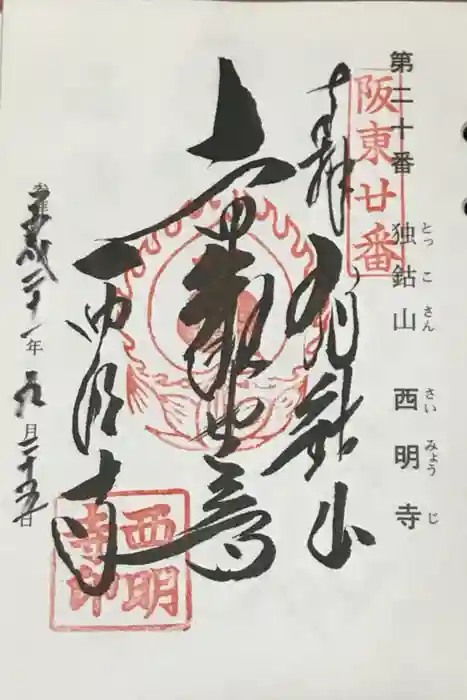 第二十番 独鈷山 西明寺
とっこさん さいみょうじ
阪東廿番
奉拝 独鈷山
西明寺
西明寺印
平成二十一年九月二十五日